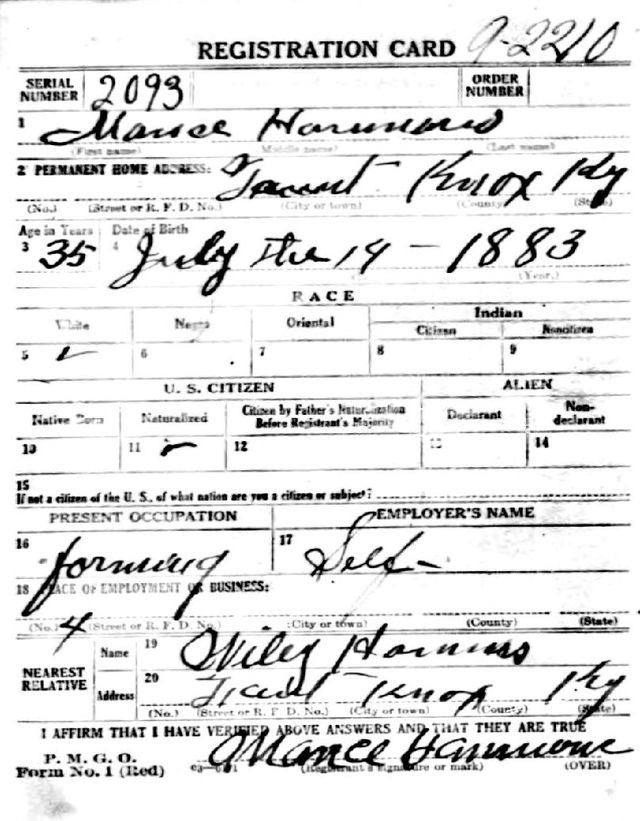 REGISTRATION CARD 9-2210
SERIAL NUMBER 2093 ORDER NUMBER
1 Mance Hammons
(First name) (Middle name) (Last name)
2 PERMANENT HOME ADDRESS: Knox Ky
(No.) (Street or R. F. D. No.) (City or town) (County) (State)
Age in Years Date of Birth
3 35 4 July the 14 - 1883
(Year.)
RACE
White Negro Oriental Indian
Citizen Noncitizen
5 6 7 8 9
U. S. CITIZEN ALIEN
Native Born Naturalized Citizen by Father's Naturalization Before Registrant's Majority Declarant Non-declarant
10 11 12 13 14
15
If not a citizen of the U. S., of what nation are you a citizen or subject?
PRESENT OCCUPATION EMPLOYER'S NAME
16 forming 17 Self-
18 PLACE OF EMPLOYMENT OR BUSINESS:
4
(No.) (Street or R. F. D. No.) (City or town) (County) (State)
NEAREST RELATIVE Name 19 Wiley Hammons
Address 20 Knox Ky
(No.) (Street or R. F. D. No.) (City or town) (County) (State)
I AFFIRM THAT I HAVE VERIFIED ABOVE ANSWERS AND THAT THEY ARE TRUE
P. M. G. O.
Form No. 1 (Red) Mance Hammons
(Registrant's signature or mark) (OVER)